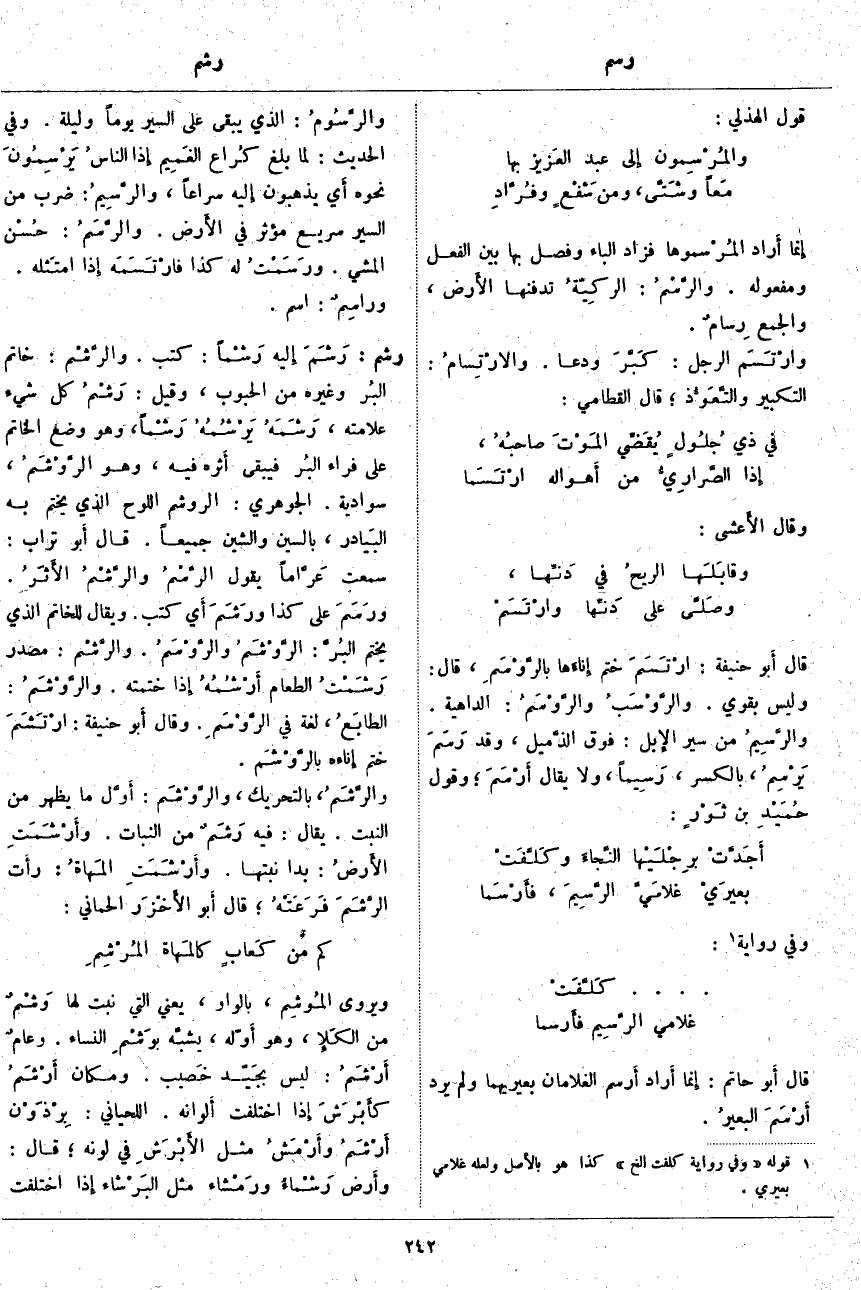 رسم
رشم
قول الهذلي :
والمُرْسِمون إلى عبد العَزيز بها
مَعاً وشَتَّى، ومن شَفْعٍ وفُرَّادِ
إنما أراد المُرْسموها فزاد الباء وفصل بها بين الفعل
ومفعوله . والرَّسْمُ : الركِيَّةُ تدفنها الأرض ،
والجمع رِسامٌ .
وارْتَسَم الرجل : كَبَّرَ ودعا . والارْتِسامُ :
التكبير والتَّعَوُّذ ؛ قال القطامي :
في ذي جُلُولٍ يُقَضِّي المَوْتَ صاحبُهُ ،
إذا الصَّراريُّ من أهواله ارْتَسَما
وقال الأعشى :
وقابَلَها الريحُ في دَنِّها ،
وصَلَّى على دَنِّها وارْتَسَمْ
قال أبو حنيفة : ارْتَسَمَ ختم إناءها بالرَّوْسَمِ ، قال:
وليس بقوي . والرَّوْسَبُ والرَّوْسَمُ : الداهية .
والرَّسِيمُ من سير الإبل : فوق الذَّميل ، وقد رَسَمَ
يَرْسِمُ ، بالكسر ، رَسِيماً ، ولا يقال أَرْسَمَ ؛ وقول
حُمَيْدِ بن ثَوْرٍ :
أجَدَّتْ بِرِجْلَيْها النَّجاءَ وكَلَّفَتْ
بعيرَيْ غلامَيَّ الرَّسِيمَ ، فأَرْسَما
وفي رواية١ :
. . . . كَلَّفَتْ
غلامي الرَّسِيم فأرسما
قال أبو حاتم : إنما أراد أرسم الغلامان بعيريهما ولم يرد
أَرْسَمَ البعيرُ .
١ قوله « وفي رواية كلفت الخ » كذا هو بالأصل ولعله غلامي
بعيري .
والرَّسُومُ : الذي يبقى على السير يوماً وليلة . وفي
الحديث : لما بلغ كُراع الغَمِيم إذا الناسُ يَرْسِمُونَ
نحوه أي يذهبون إليه سراعاً ، والرَّسِيمُ : ضرب من
السير سريع مؤثر في الأرض . والرَّسَمُ : حُسْن
المشي . ورَسَمْتُ له كذا فارْتَسَمَه إذا امتَثله .
وراسِمٌ : اسم .
رشم : رَشَمَ إليه رَشْماً : كتب . والرَّشْم : خاتم
البُر وغيره من الحبوب ، وقيل : رَشْمُ كل شيء
علامته ، رَشَمَهُ يَرْشُمُهُ رَشْماً، وهو وضع الخاتم
على فراء البُر فيبقى أثره فيه ، وهو الرَّوْشَمُ ،
سوادية . الجوهري : الروشم اللوح الذي يختم به
البَيادر ، بالسين والشين جميعاً . قال أبو تراب :
سمعت عَرَّاماً يقول الرَّسْمُ والرَّشْمُ الأَثَرُ .
ورَسَمَ على كذا ورَشَمَ أي كتب. ويقال للخاتم الذي
يختم البُرَّ : الرَّوْشَمُ والرَّوْسَمُ . والرَّشْم : مصدر
رَشَمْتُ الطعام أَرْشُمُهُ إذا ختمته . والرَّوْشَمُ :
الطابَعُ ، لغة في الرَّوْسَمِ . وقال أبو حنيفة : ارْتَشَمَ
ختم إناءه بالرَّوْشَم .
والرَّشَمُ، بالتحريك، والرَّوْشَم : أوّل ما يظهر من
النبت . يقال : فيه رَشَمٌ من النبات . وأَرْشَمَتِ
الأَرضُ : بدا نبتها . وأَرْشَمَتِ المَهاةُ : رأت
الرَّشَمَ فَرَعَتْهُ ؛ قال أبو الأَخْزَرِ الحماني :
كم مِّن كَعابٍ كالمَهاة المُرْشِمِ
ويروى المُوشِم ، بالواو ، يعني التي نبت لها وَشْمٌ
من الكَلإِ ، وهو أوّله ، يشبَّه بوَشْمِ النساء . وعامٌ
أَرْشَمُ : ليس بجَيِّد خَصيب . ومكان أَرْشَمُ
كأَبْرَشَ إذا اختلفت ألوانه . اللحياني : بِرْذَوْن
أَرْشَمُ وأَرْمَشُ مثل الأَبْرَشِ في لونه ؛ قال :
وأرض رَشْماءُ ورَمْشاء مثل البَرْشاء إذا اختلفت
٢٤٢